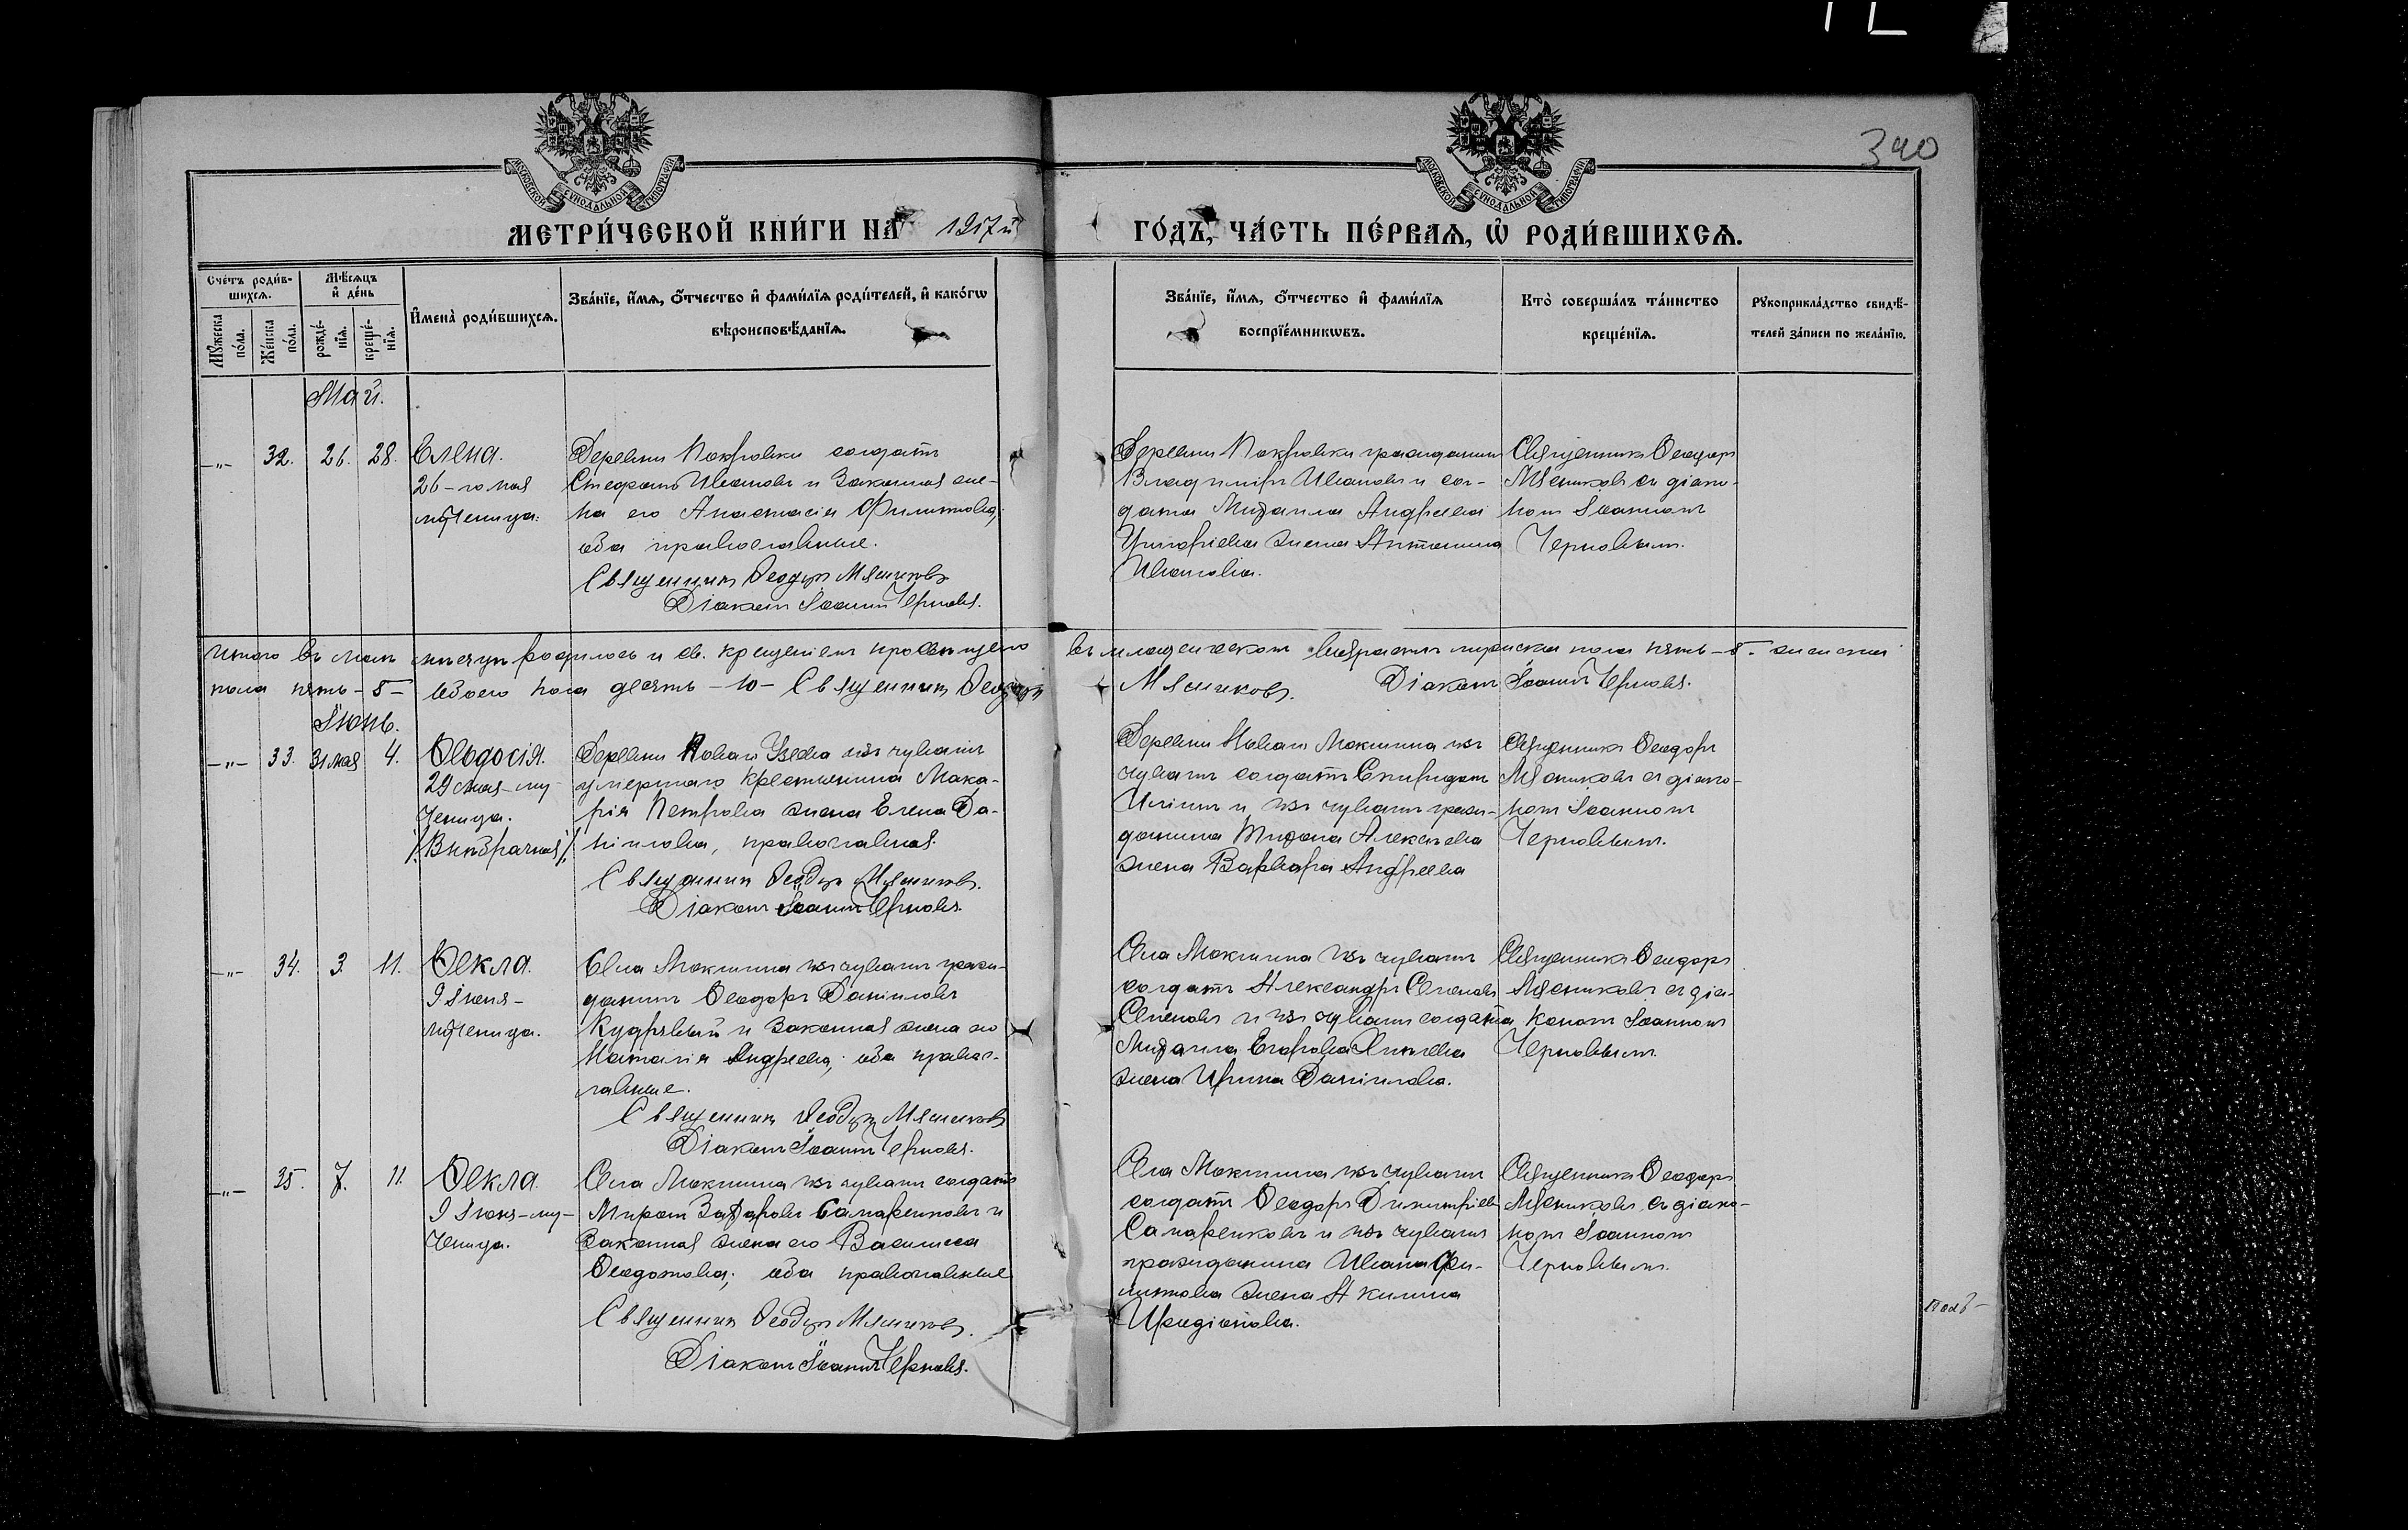 340
МОСКОВСКОЙ СѴНОДАЛЬНОЙ ТИПОГРАФІИ
МОСКОВСКОЙ СѴНОДАЛЬНОЙ ТИПОГРАФІИ
МЕТРИ́ЧЕСКОЙ КНИ́ГИ НА 1917 й
ГО́ДЪ, ЧА́СТЬ ПЕ́РВАѦ, Ѡ҆ РОДИ́ВШИХСѦ.
Сче́тъ роди́в-
шихсѧ.
Мѣ́сѧцъ
и҆ де́нь
Мꙋ́жеска
по́ла.
Же́нска
по́ла.
рожде́-
нїѧ.
креще́-
нїѧ.
И҆мена̀ роди́вшихсѧ.
Зва́нїе, и҆́мѧ, ѻ҆́тчество и҆ фами́лїѧ роди́телей, и҆ како́гѡ
вѣроисповѣ́данїѧ.
Зва́нїе, и҆́мѧ, ѻ҆́тчество и҆ фами́лїѧ
воспрїе́мникѡвъ.
Кто̀ соверша́лъ та́инство
креще́нїѧ.
Рꙋкоприкла́дство свидѣ́-
телей за́писи по жела́нїю.
Май.
-„- 32. 26. 28.
Елена.
26-го мая
мученица.
Деревни Покровки солдатъ
Стефанъ Ивановъ и законная же-
на его Анастасія Филиппова,
оба православные.
Священникъ Ѳеодоръ Мясниковъ
Діаконъ Іоаннъ Черновъ.
Деревни Покровки гражданинъ
Владиміръ Ивановъ и сол-
дата Михаила Андреева
жена Антонина
Иванова.
Священникъ Ѳеодоръ
Мясниковъ съ діако-
номъ Іоанномъ
Черновымъ.
Итого въ маѣ мѣсяцѣ родилось и св. крещеніемъ просвѣщено въ младенческомъ возрастѣ мужска пола пять-5- женска
пола пять-5- обоего пола десять-10- Священникъ Ѳеодоръ Мясниковъ. Діаконъ Іоаннъ Черновъ.
Іюнь.
-„- 33. 31 мая 4.
Ѳеодосія.
29 мая-му-
ченица.
/Внѣбрачная/
Деревни Новаго Узеева изъ чувашъ
умершаго крестьянина Мака-
рія Петрова жена Елена Да-
нілова, православная.
Священникъ Ѳеодоръ Мясниковъ.
Діаконъ Іоаннъ Черновъ.
Деревни Новаго Мокшина изъ
чувашъ солдатъ Спиридонъ
Ильинъ и изъ чувашъ граж-
данина Тихона Алексѣева
жена Варвара Андреева
Священникъ Ѳеодоръ
Мясниковъ съ діако-
номъ Іоанномъ
Черновымъ.
-„- 34. 3. 11.
Ѳекла.
9 Іюня-
мученица.
Села Мокшина изъ чувашъ граж-
данинъ Ѳеодоръ Даніиловъ
Кудрявый и законная жена его
Наталія Андреева; оба право-
лавные.
Священникъ Ѳеодоръ Мясниковъ
Діаконъ Іоаннъ Черновъ.
Села Мокшина изъ чувашъ
солдатъ Александръ Семеновъ
Семеновъ и изъ чувашъ солдата
Михаила Егорова
жена Ирина Даніилова.
Священникъ Ѳеодоръ
Мясниковъ съ діа-
кономъ Іоанномъ
Черновымъ.
-„- 35. 7. 11.
Ѳекла.
9 Іюня-му-
ченица.
Села Мокшина изъ чувашъ солдатъ
Миронъ Захаровъ Сапаренковъ и
законная жена его Васимиса
Ѳеодотова; оба православные
Священникъ Ѳеодоръ Мясниковъ.
Діаконъ Іоаннъ Черновъ.
Села Мокшина изъ чувашъ
солдатъ Ѳеодоръ Димитріевъ
Сапаренковъ и изъ чувашъ
гражданина Ивана Фи-
липпова жена Акилина
Иродіонова.
Священникъ Ѳеодоръ
Мясниковъ съ діако-
номъ Іоанномъ
Черновымъ.